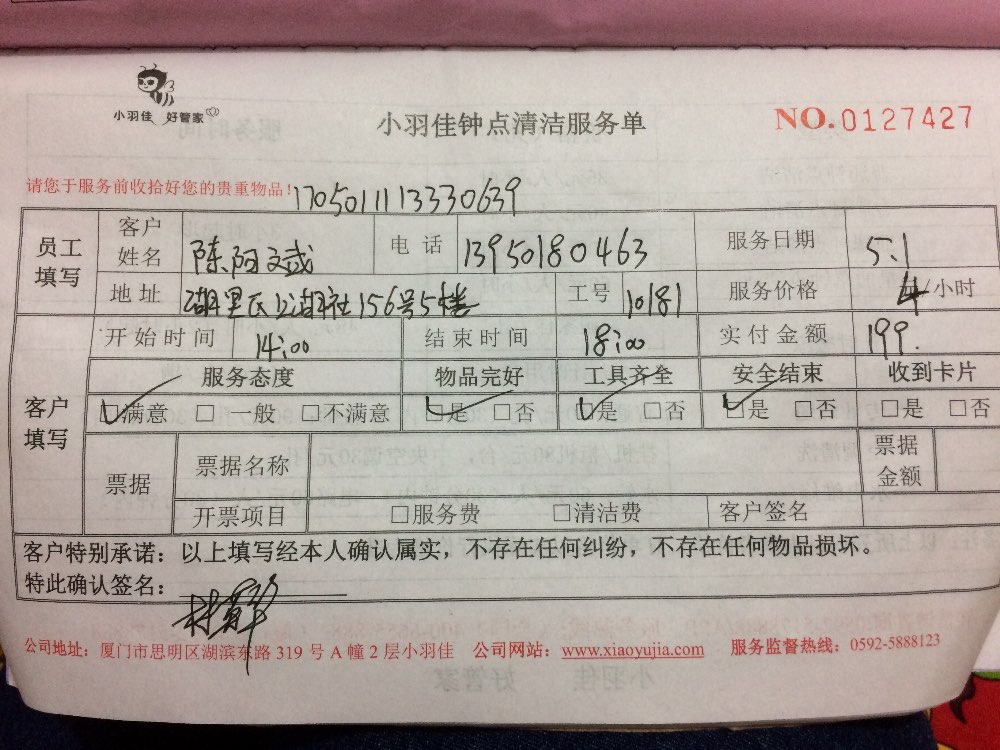 小羽佳 好管家
小羽佳钟点清洁服务单
NO.0127427
请您于服务前收拾好您的贵重物品!
1705011113330639
员工填写 客户姓名 陈阳文武 电话 13950180463 服务日期 5.1
地址 156号5楼 工号 10181 服务价格 4/小时
客户填写 开始时间 14:00 结束时间 18:00 实付金额 199.
服务态度 物品完好 工具齐全 安全结束 收到卡片
☑满意 □一般 □不满意 ☑是 □否 ☑是 □否 ☑是 □否 □是 □否
票据 票据名称 票据金额
开票项目 □服务费 □清洁费 客户签名
客户特别承诺:以上填写经本人确认属实,不存在任何纠纷,不存在任何物品损坏。
特此确认签名:
公司地址:厦门市思明区湖滨东路 319 号 A 幢 2 层小羽佳 公司网站:www.xiaoyujia.com 服务监督热线:0592-5888123